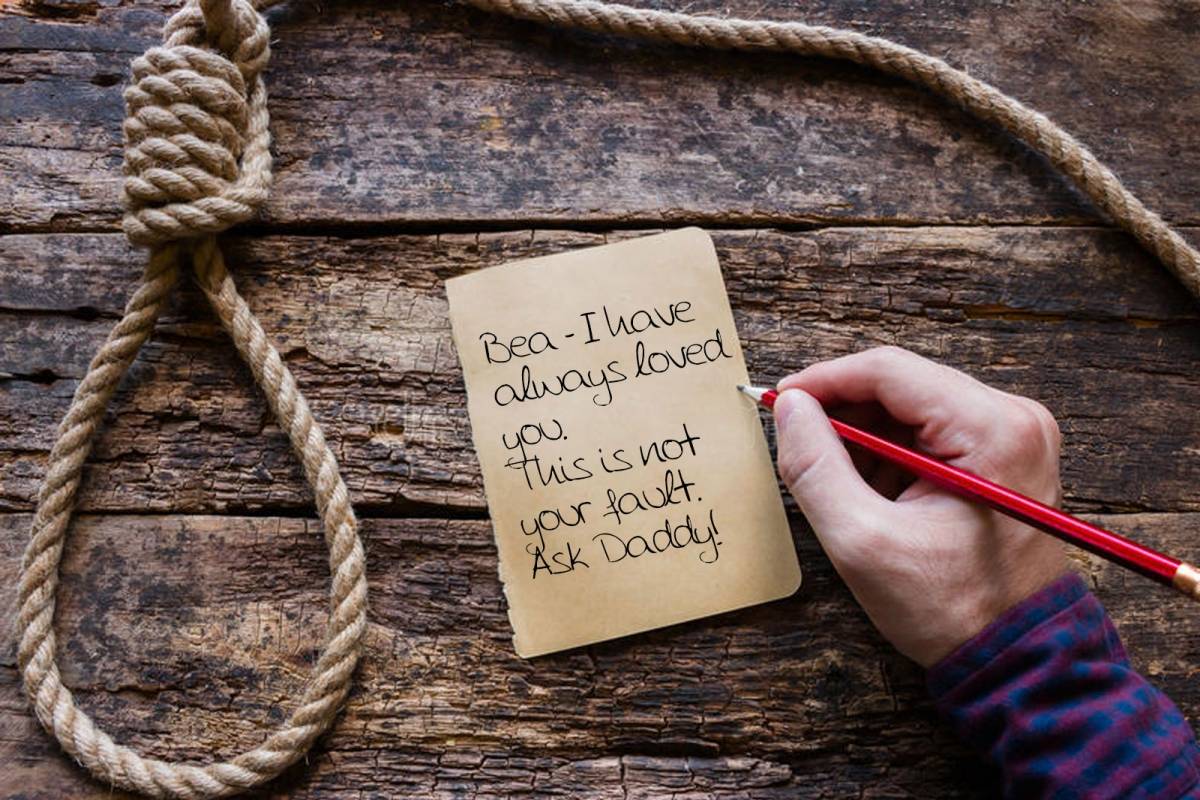 Bea - I have
always loved
you.
This is not
your fault.
Ask Daddy!